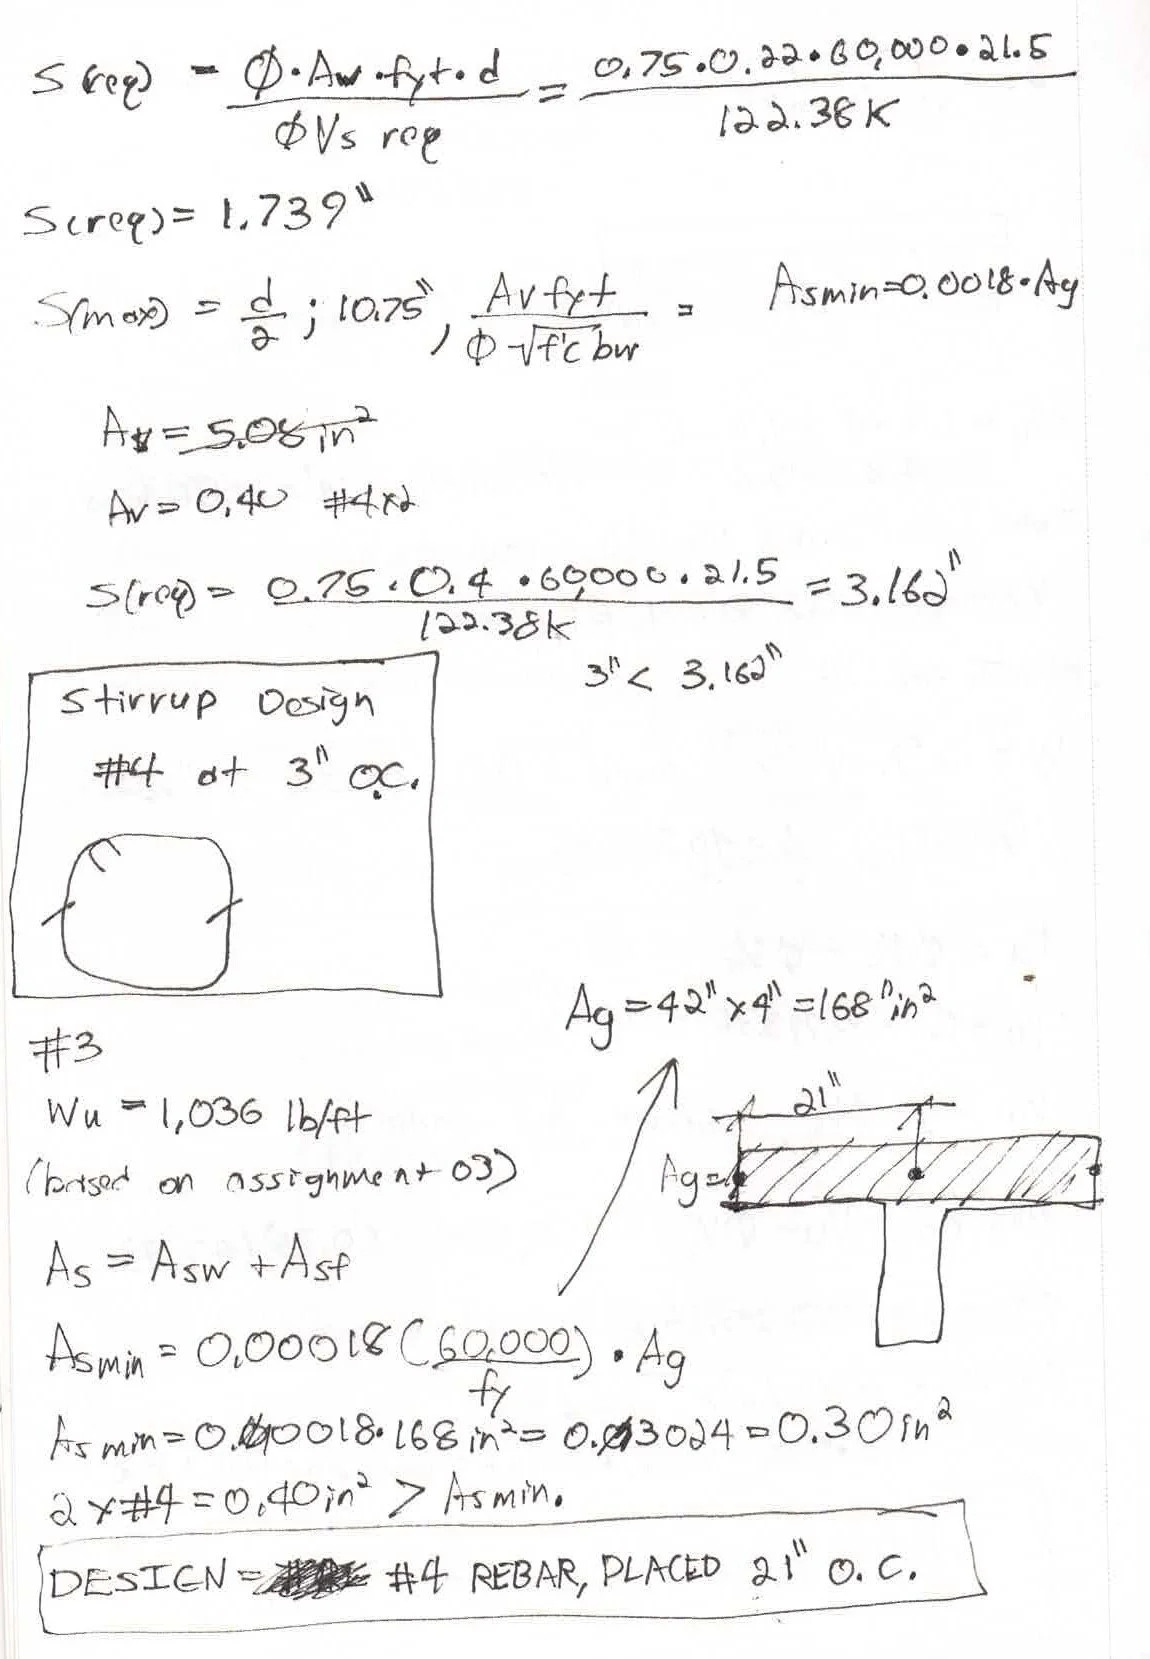 S(req) = Ø·Av·fyt·d / ØVs req = 0.75·0.22·60,000·21.5 / 122.38K
S(req) = 1.739"
S(max) = d/2 ; 10.75", Av fyt / Ø√f'c bw =
Asmin=0.0018·Ag
Av = 5.08 in²
Av = 0.40 #4x2
S(req) = 0.75·0.4·60,000·21.5 / 122.38k = 3.162"
3" < 3.162"
Stirrup Design
#4 at 3" O.C.
Ag = 42" x 4" = 168" in²
#3
Wu = 1,036 lb/ft
(based on assignment 03)
21"
Ag=
As = Asw + Asf
Asmin = 0.00018 (60,000 / fy) · Ag
As min = 0.0018·168 in² = 0.3024 = 0.30 in²
2 x #4 = 0.40 in² > Asmin.
DESIGN = #4 REBAR, PLACED 21" O.C.